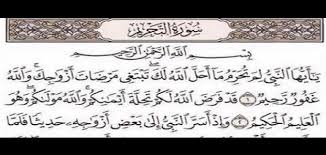 سُورَةُ التَّحْرِيمِ
بِسْمِ اللَّهِ الرَّحْمَٰنِ الرَّحِيمِ
يَا أَيُّهَا النَّبِيُّ لِمَ تُحَرِّمُ مَا أَحَلَّ اللَّهُ لَكَ تَبْتَغِي مَرْضَاتَ أَزْوَاجِكَ وَاللَّهُ
غَفُورٌ رَّحِيمٌ ١ قَدْ فَرَضَ اللَّهُ لَكُمْ تَحِلَّةَ أَيْمَانِكُمْ وَاللَّهُ مَوْلَاكُمْ وَهُوَ
الْعَلِيمُ الْحَكِيمُ ٢ وَإِذْ أَسَرَّ النَّبِيُّ إِلَىٰ بَعْضِ أَزْوَاجِهِ حَدِيثًا فَلَمَّا